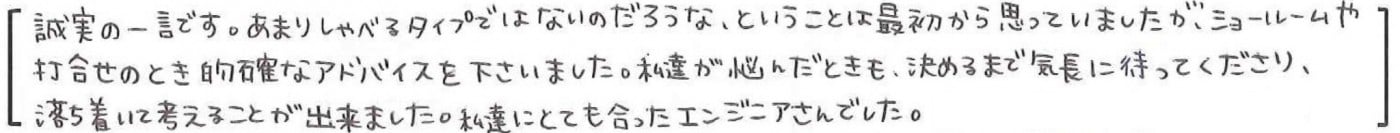 誠実の一言です。あまりしゃべるタイプではないのだろうな、ということは最初から思っていましたが、ショールームや
打合せのとき的確なアドバイスを下さいました。私達が悩んだときも、決めるまで気長に待ってくださり、
落ち着いて考えることが出来ました。私達にとても合ったエンジニアさんでした。